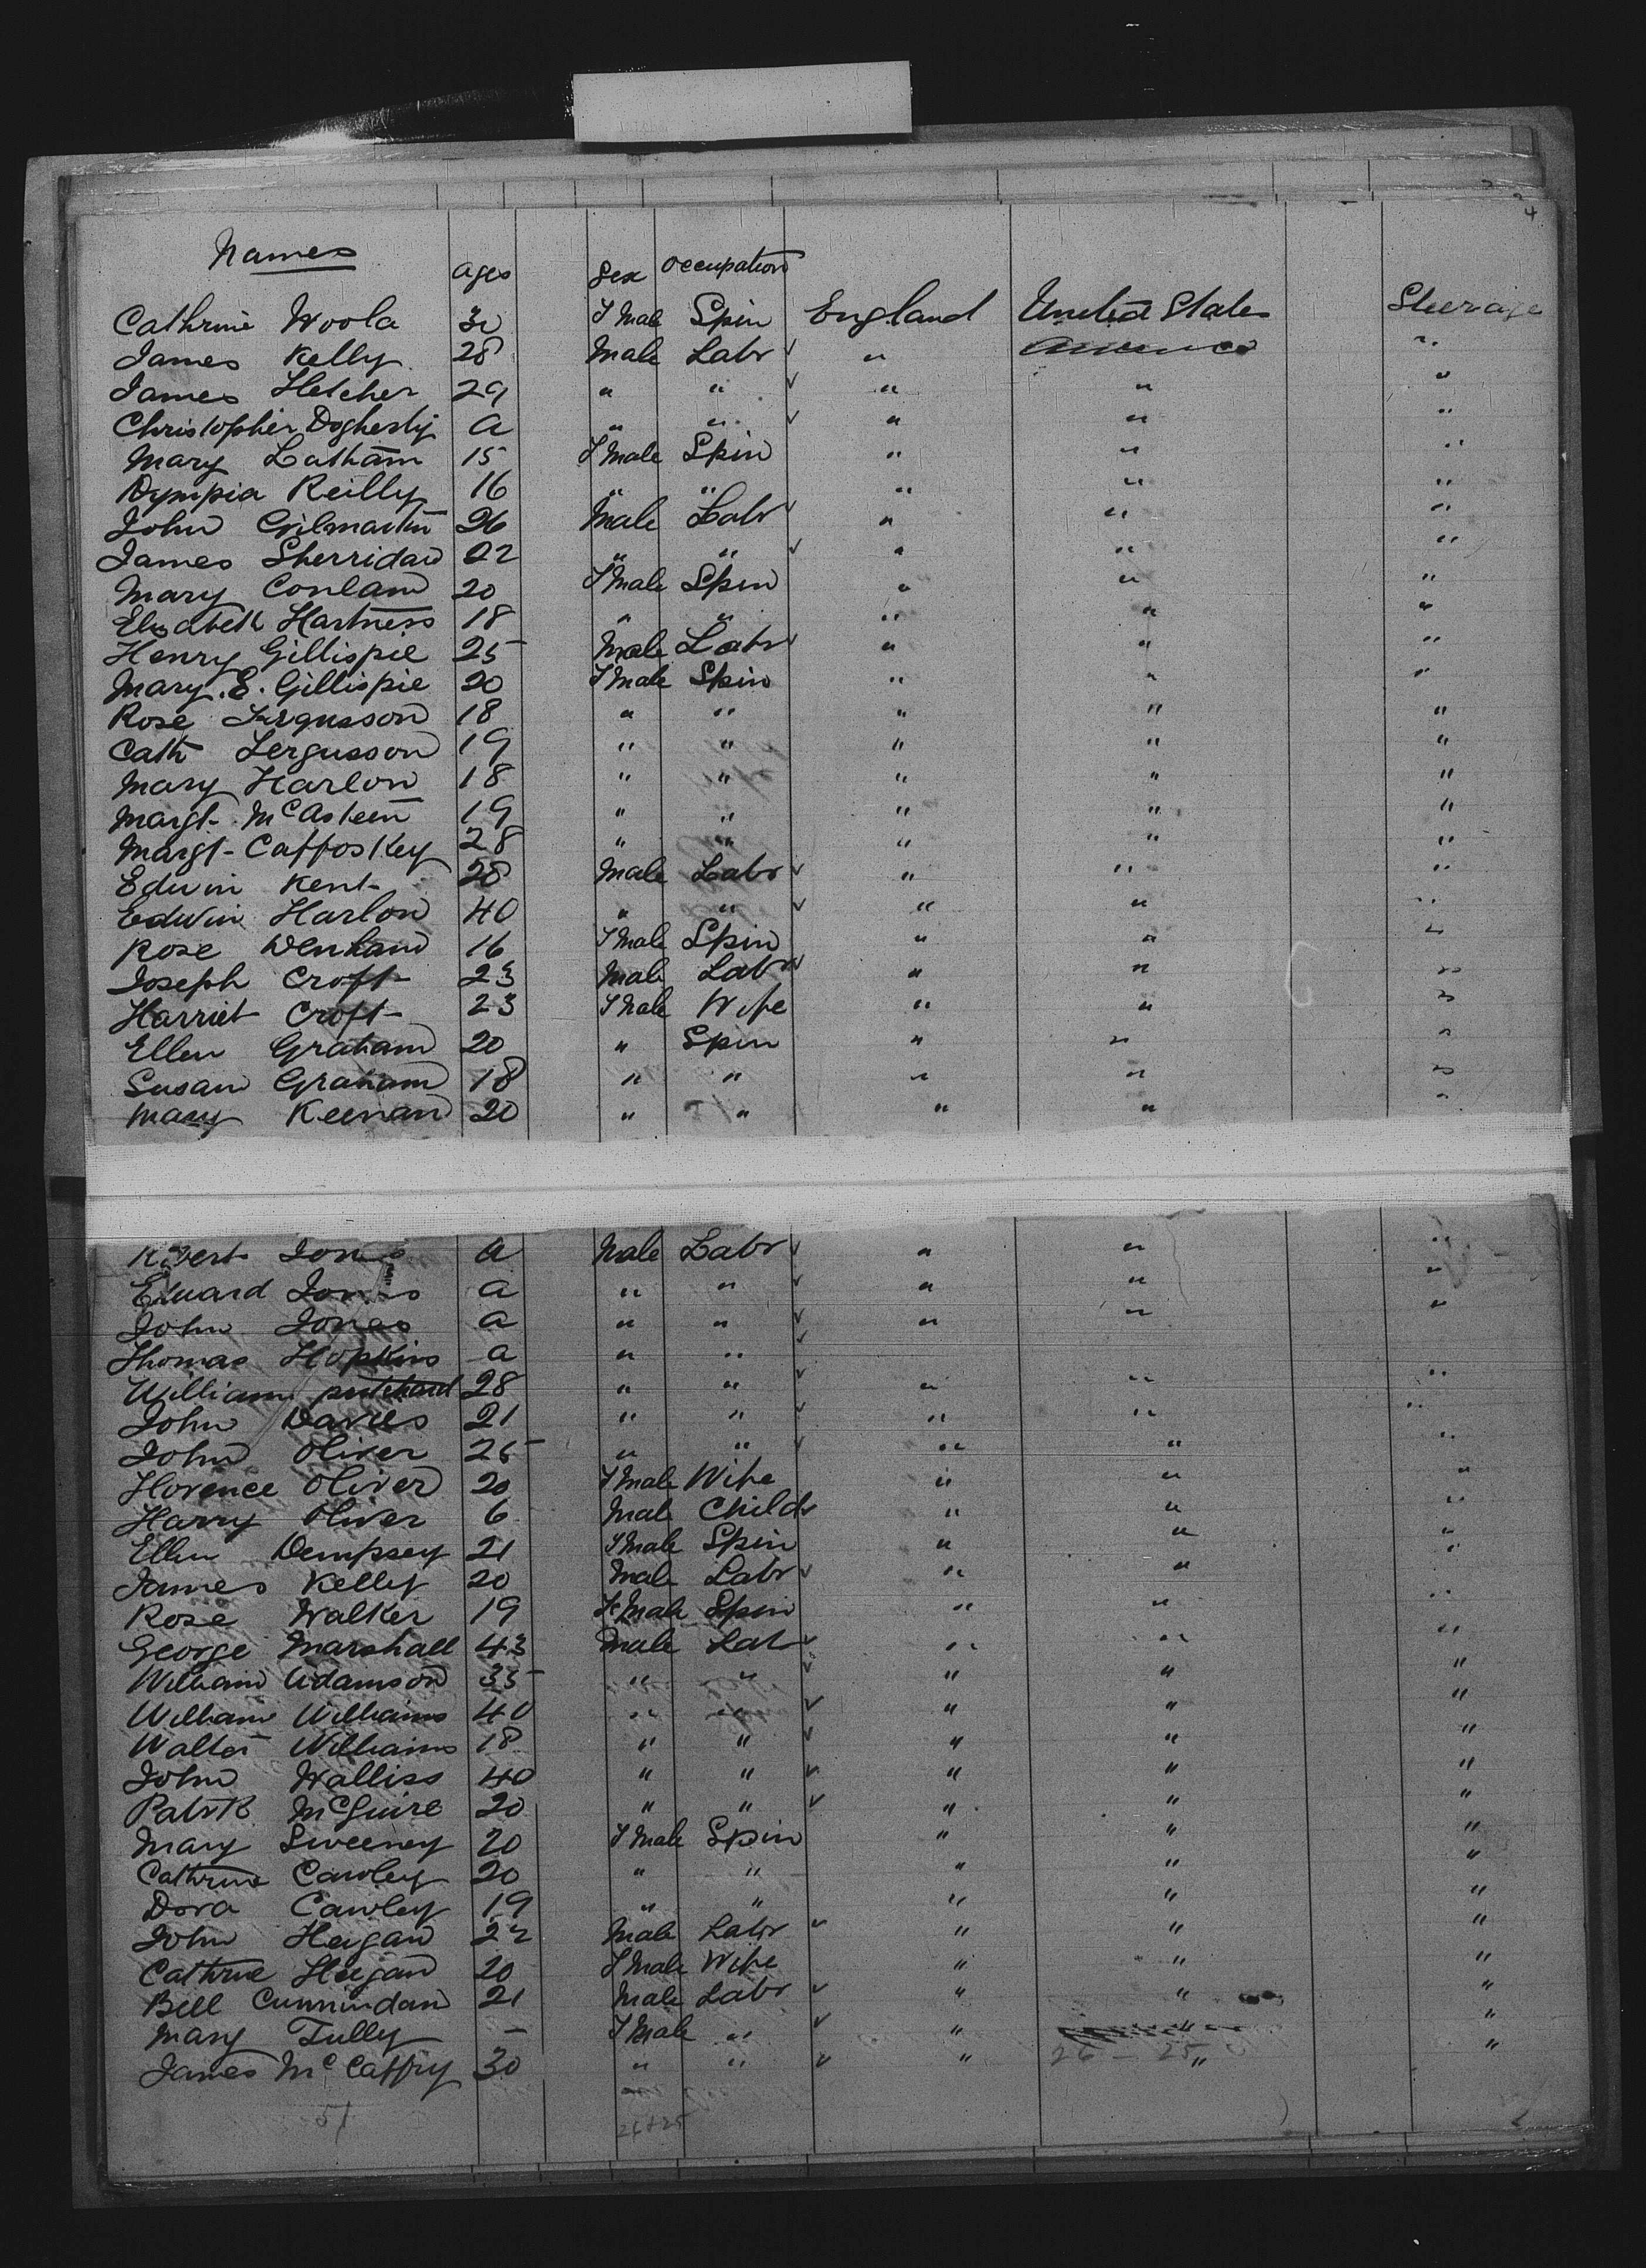 4
Names Ages Sex Occupation
Cathrine Woola 30 F Male Spin England United States Steerage
James Kelly 28 Male Labr " "
James Fletcher 29 " " " " "
Christopher Dogherty A " " " " "
Mary Latham 15 F Male Spin " " "
Dympia Reilly 16 " " " " "
John Gilmartin 26 Male Labr " " "
James Sherridan 22 " " " " "
Mary Conlan 20 F Male Spin " " "
Elisabeth Hartness 18 " " " " "
Henry Gillispie 25 Male Labr " " "
Mary. E. Gillispie 20 F Male Spin " " "
Rose Fergusson 18 " " " " "
Cath Fergusson 19 " " " " "
Mary Harlon 18 " " " " "
Margt McAsteen 19 " " " " "
Margt Caffoskey 28 " " " " "
Edwin Kent 28 Male Labr " " "
Edwin Harlon 40 " " " " "
Rose Denham 16 F Male Spin " " "
Joseph Croft 23 Male Labr " " "
Harriet Croft 23 F Male Wife " " "
Ellen Graham 20 " Spin " " "
Susan Graham 18 " " " " "
Mary Keenan 20 " " " " "
Robert Jones A Male Labr " " "
Edward Jones A " " " " "
John Jones A " " " " "
Thomas Hopkins A " "
William pritchard 28 " " " " "
John Davies 21 " " " " "
John Oliver 25 " " " " "
Florence Oliver 20 F Male Wife " " "
Harry Oliver 6 Male Child " " "
Ellen Dempsey 21 F Male Spin " " "
James Kelly 20 Male Labr " " "
Rose Walker 19 Fe Male Spin " " "
George Marshall 43 Male Lab " " "
William Adamson 35 " " " " "
William Williams 40 " " " " "
Walter Williams 18 " " " " "
John Walliss 40 " " " " "
Patrk McGuire 20 " " " " "
Mary Sweeney 20 F Male Spin " " "
Cathrine Cawley 20 " " " " "
Dora Cawley 19 " " " " "
John Hegan 22 Male Labr " " "
Cathrine Hegan 20 F Male Wife " " "
Bell Cunnindan 21 Male Labr " " "
Mary Tully - F Male " " " "
James McCaffry 30 " " " " "
26 - 25
51 26+25